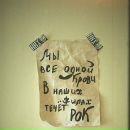 МЫ
ВСЕ ОДНОЙ
КРОВИ
В НАШИХ
ЖИЛАХ
ТЕЧЁТ
РОК